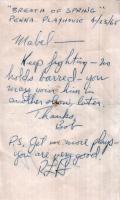 "BREATH OF SPRING"
PENNA. PLAYHOUSE 6/25/65
Mabel—
Keep fighting—no
holds barred—you
may your him in
another show, later.
Thanks,
Bob
P.S. Get me more plays—
you are very good